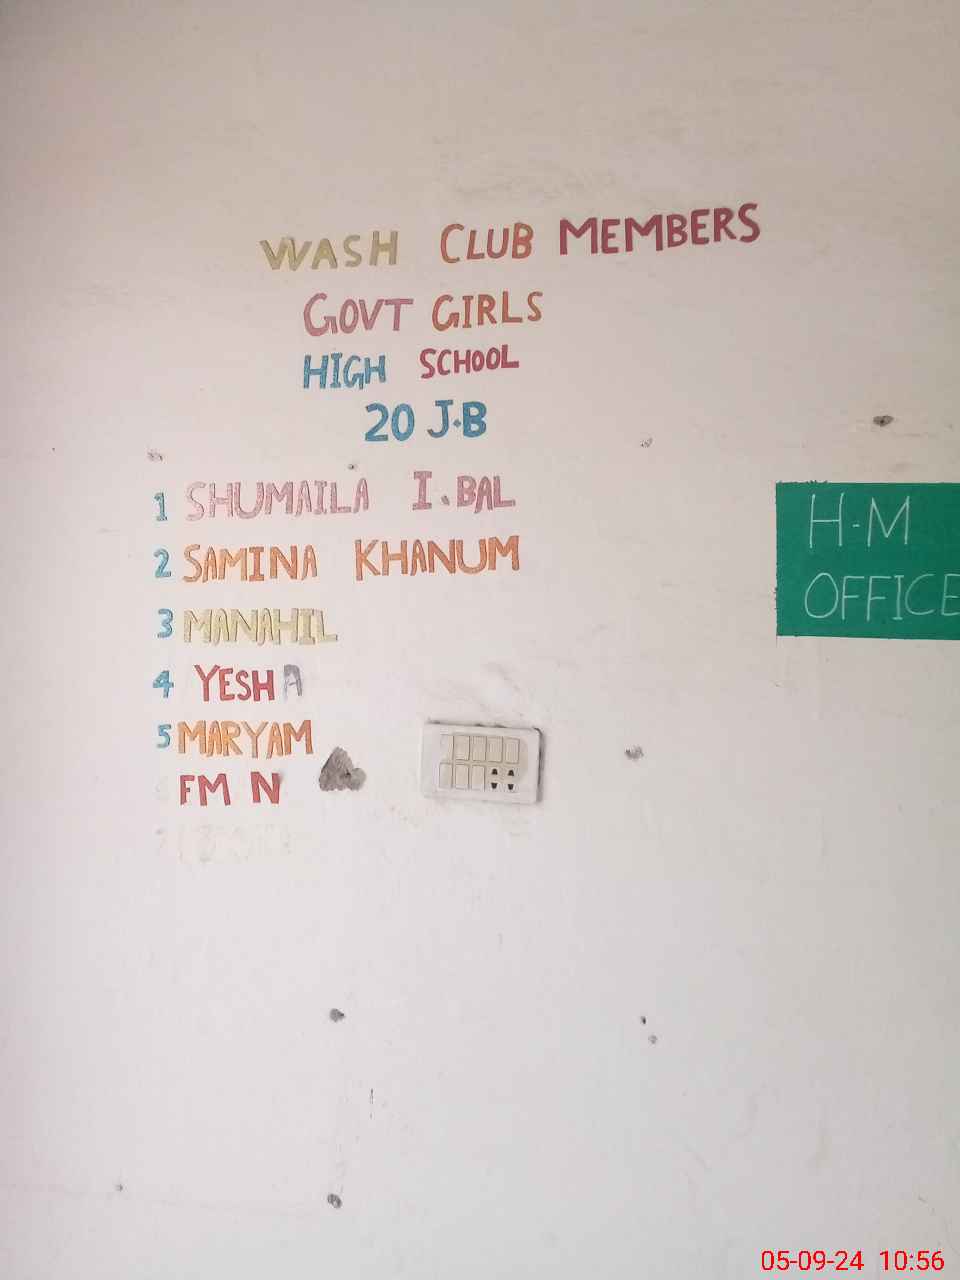 WASH CLUB MEMBERS
GOVT GIRLS
HIGH SCHOOL
20 J.B
1 SHUMAILA I.BAL
2 SAMINA KHANUM
3 MANAHIL
4 YESHA
5 MARYAM
FM N
H.M
OFFICE
05-09-24 10:56